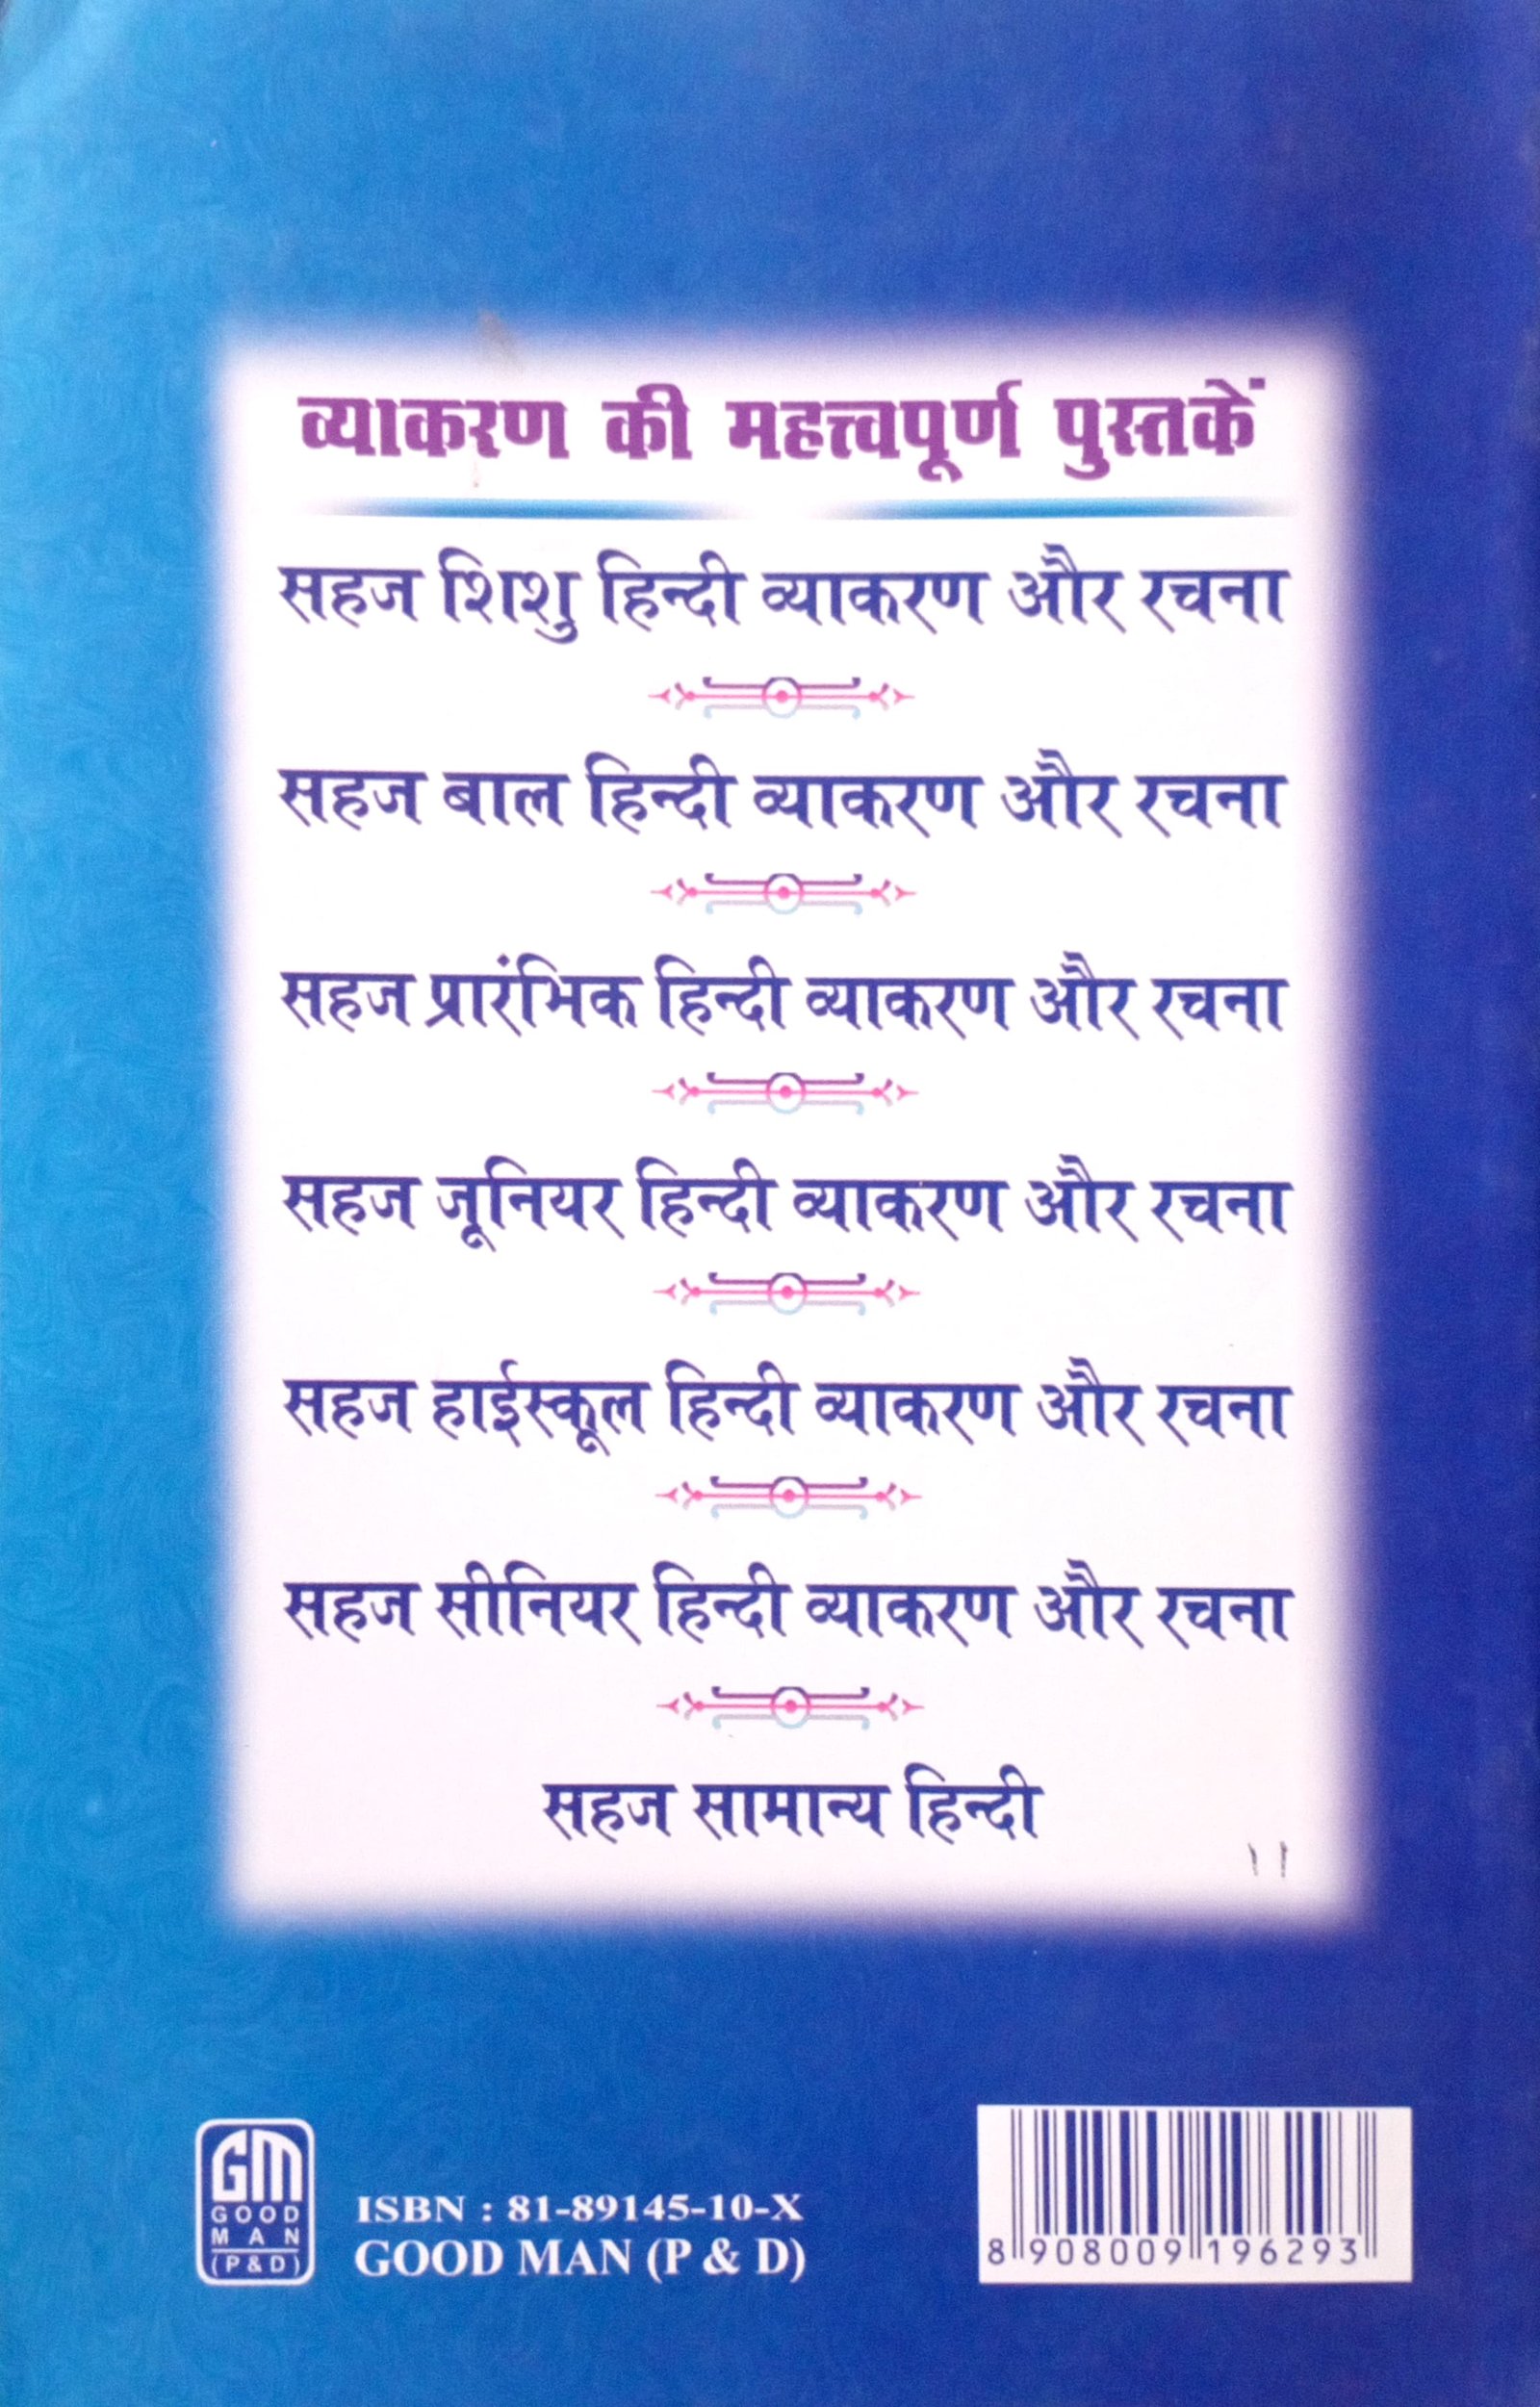 व्याकरण की महत्त्वपूर्ण पुस्तकें
सहज शिशु हिन्दी व्याकरण और रचना
सहज बाल हिन्दी व्याकरण और रचना
सहज प्रारंभिक हिन्दी व्याकरण और रचना
सहज जूनियर हिन्दी व्याकरण और रचना
सहज हाईस्कूल हिन्दी व्याकरण और रचना
सहज सीनियर हिन्दी व्याकरण और रचना
सहज सामान्य हिन्दी
GM
GOOD
MAN
(P&D)
ISBN : 81-89145-10-X
GOOD MAN (P & D)
8 908009 196293